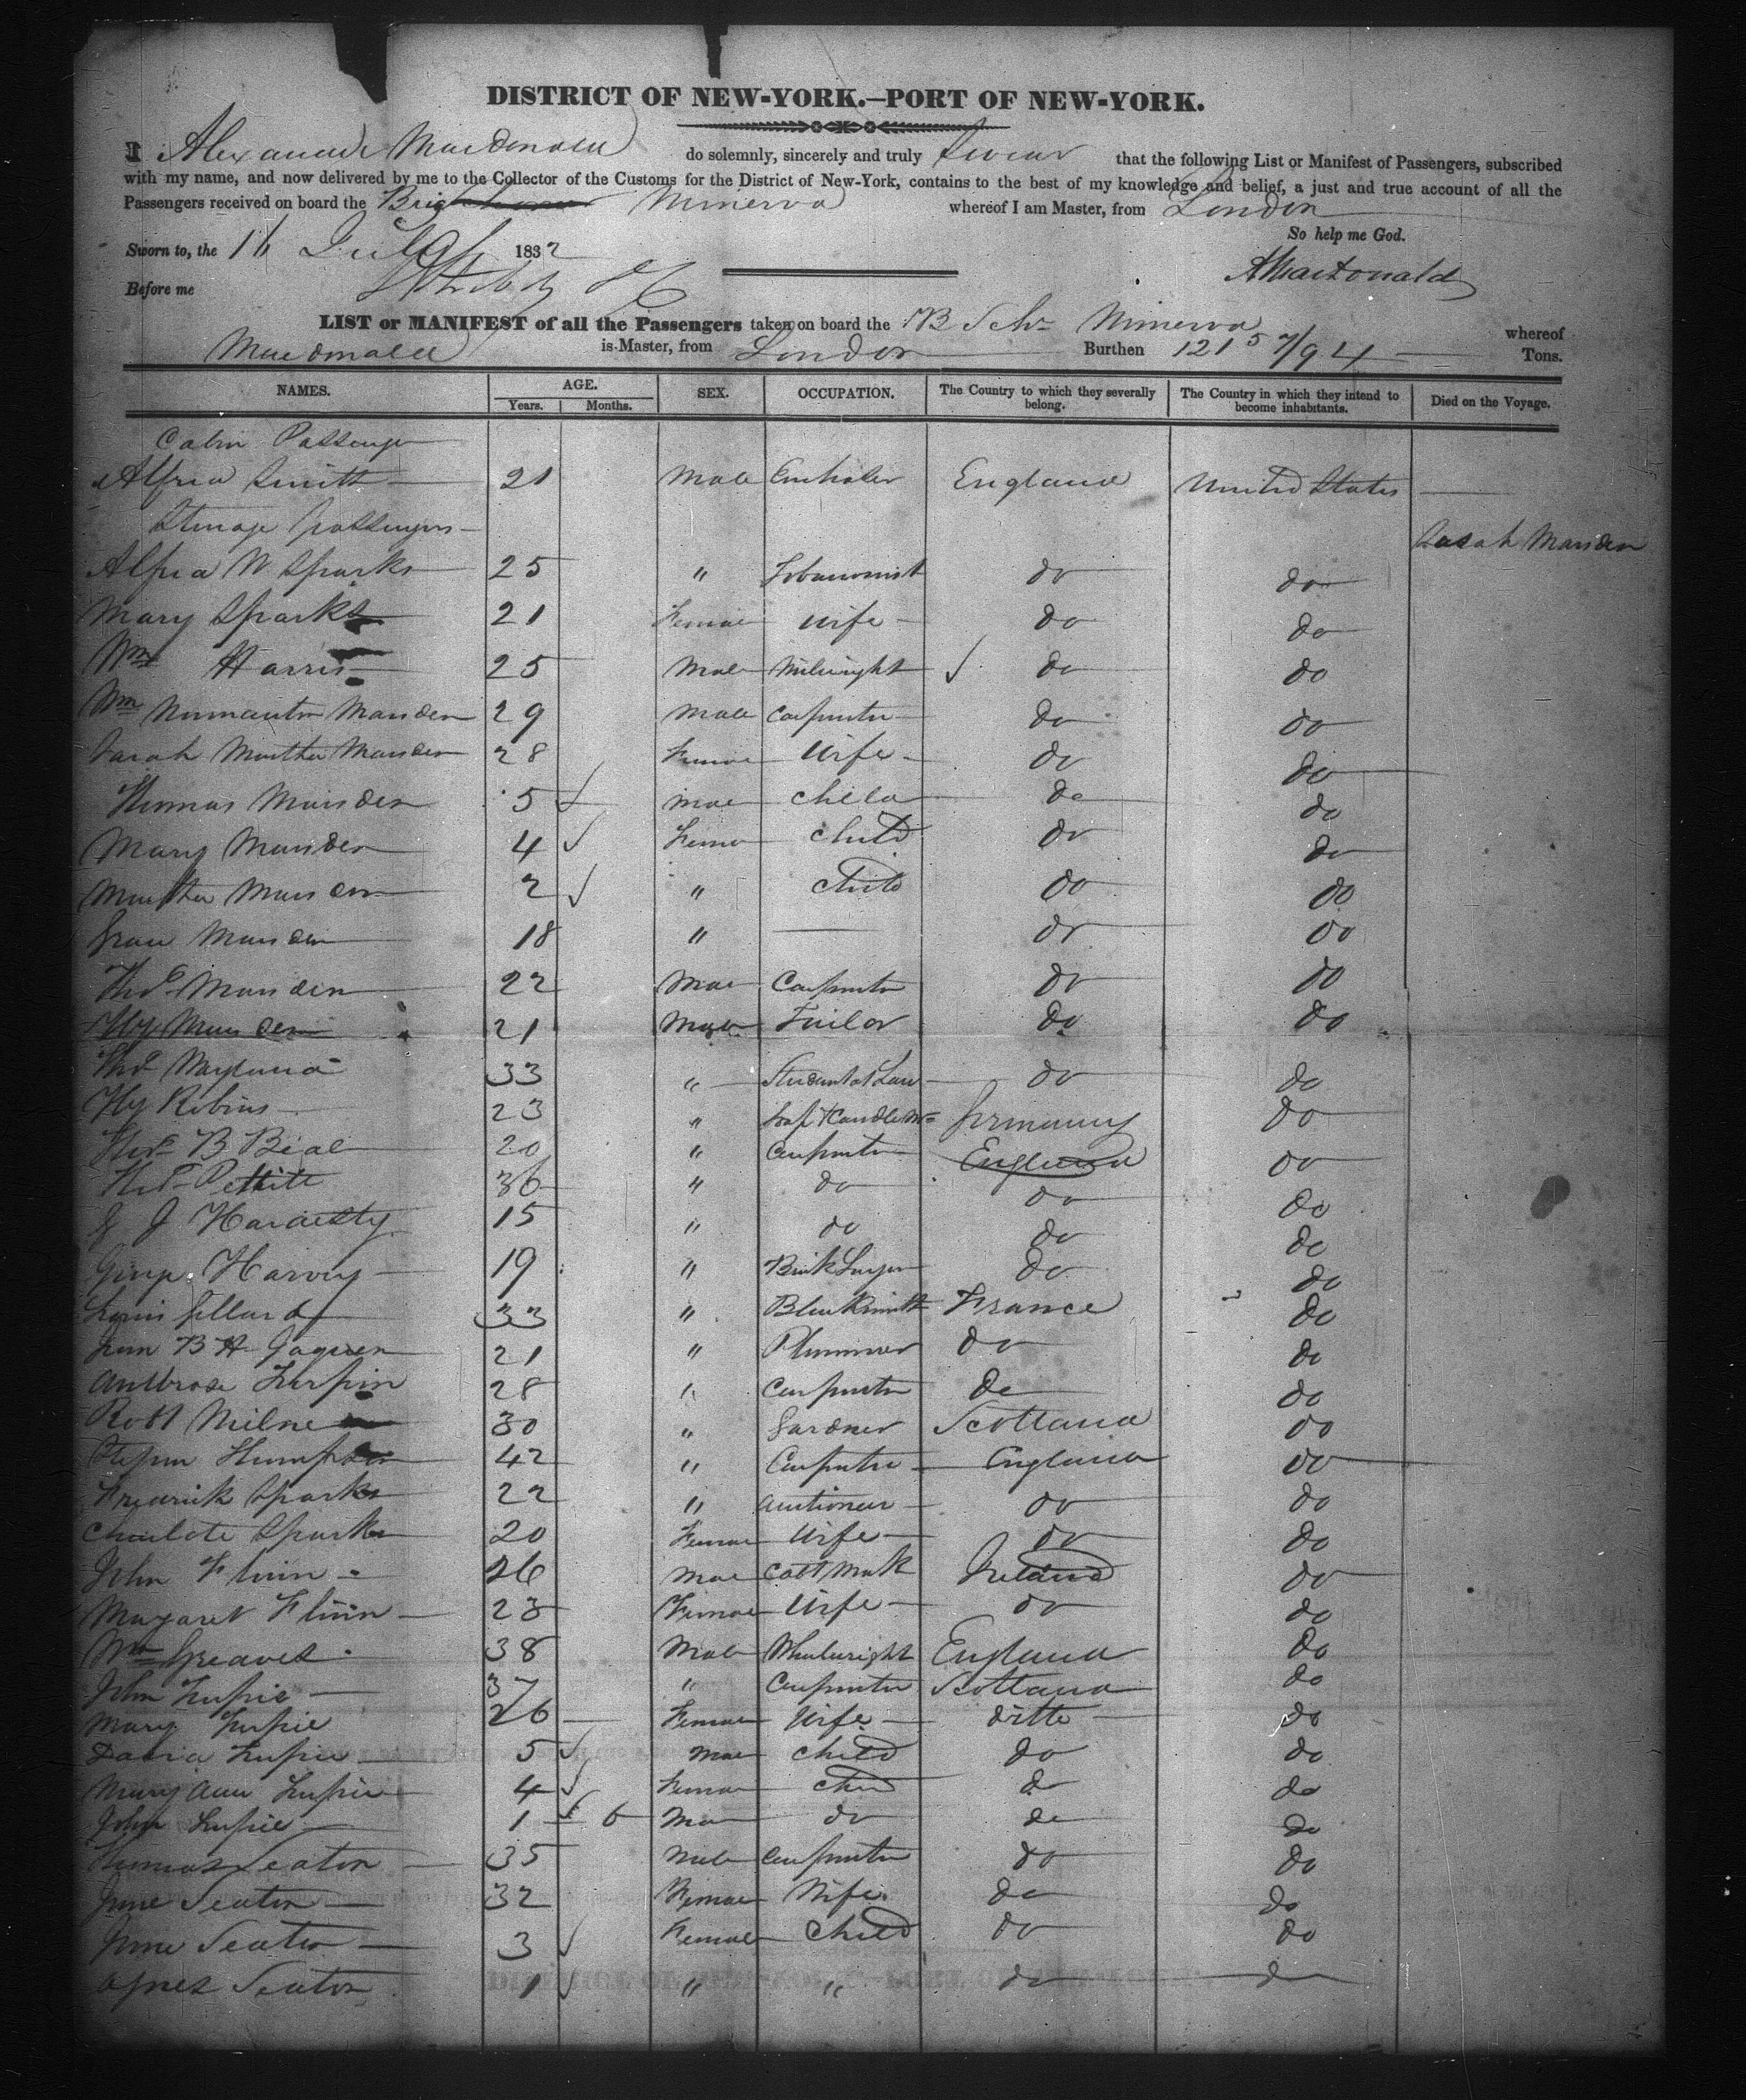 DISTRICT OF NEW-YORK.—PORT OF NEW-YORK.
I Alexander MacDonald do solemnly, sincerely and truly swear that the following List or Manifest of Passengers, subscribed
with my name, and now delivered by me to the Collector of the Customs for the District of New-York, contains to the best of my knowledge and belief, a just and true account of all the
Passengers received on board the Brig Minerva whereof I am Master, from London
So help me God.
Sworn to, the 16 July 1832
AMacdonald
Before me
LIST or MANIFEST of all the Passengers taken on board the B Schr Minerva whereof
Macdonald is Master, from London Burthen 121 5/94 Tons.
NAMES. AGE. SEX. OCCUPATION. The Country to which they severally belong. The Country in which they intend to become inhabitants. Died on the Voyage.
Years. Months.
Cabin Passenger
Alfred Smith 21 Male England United States
Steerage passengers Sarah Marsden
Alfred W Sparks 25 " do do
Mary Sparks 21 Female Wife do do
Wm Harris 25 Male Milwright do do
Wm Marsden 29 Male Carpenter do do
Sarah Martha Marsden 28 Female Wife do do
Thomas Marsden 5 Male Child do do
Mary Marsden 4 Female Child do do
Martha Marsden 2 " Child do do
Marsden 18 " do do
Thos Marsden 22 Male Carpenter do do
Hy Marsden 21 Male Tailor do do
Thos 33 " Student at Law do do
Hy Robins 23 " Soap & Candle Mr Germany do
Thos B Beal 20 " Carpenter England do
Thos Pettite 36 " do do do
J Hardesty 15 " do do do
George Harvey 19 " Brick Layer do do
Louis 33 " Blacksmith France do
B H Jaquen 21 " Plummer do do
Ambrose Turpin 28 " Carpenter do do
Robt Milne 30 " Gardner Scotland do
42 " Carpenter England do
Fredrick Sparks 22 " Auctioneer do do
Charlote Sparks 20 Female Wife do do
John Flinn 26 Male Ireland do
Margaret Flinn 23 Female Wife do do
Wm Greaves 38 Male Wheelwright England do
John 37 " Carpenter Scotland do
Mary 26 Female Wife ditto do
David 5 Male Child do do
Mary Ann 4 Female Child do do
John 1 6 Male do do do
Thomas Seaton 35 Male Carpenter do do
Jane Seaton 32 Female Wife do do
Jane Seaton 3 Female Child do do
Agnes Seaton 1 " " do do